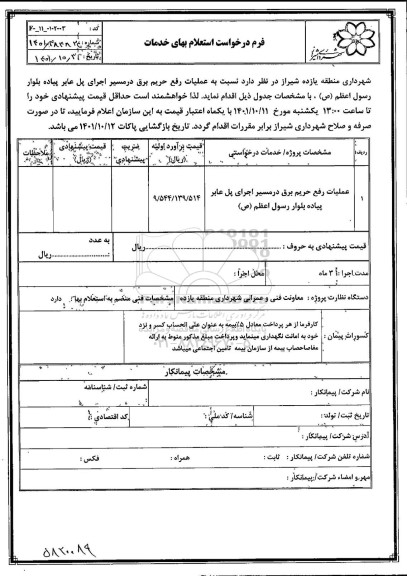 فرم درخواست استعلام بهای خدمات
شهرداری منطقه یازده شیراز در نظر دارد نسبت به عملیات رفع حریم برق درمسیر اجرای پل عابر پیاده بلوار
رسول اعظم (ص) ، با مشخصات جدول ذیل اقدام نماید. لذا خواهشمند است حداقل قیمت پیشنهادی خود را
تا ساعت ۱۳:۰۰ یکشنبه مورخ ۱۴۰۱/۱۰/۱۱ با یکماه اعتبار قیمت به این سازمان اعلام فرمایید، تا در صورت
صرفه و صلاح شهرداری شیراز برابر مقررات اقدام گردد. تاریخ بازگشایی پاکات ۱۴۰۱/۱۰/۱۲ می باشد.
ردیف مشخصات پروژه/ خدمات درخواستی قیمت برآورد اولیه (ریال) ضریب پیشنهادی قیمت پیشنهادی (ریال) ملاحظات
۱ عملیات رفع حریم برق درمسیر اجرای پل عابر ۹/۵۴۴/۱۳۹/۵۱۴
پیاده بلوار رسول اعظم (ص)
قیمت پیشنهادی به حروف : ریال به عدد : ریال
مدت اجرا : ۳ ماه محل اجرا :
دستگاه نظارت پروژه : معاونت فنی و عمرانی شهرداری منطقه یازده مشخصات فنی منضم به استعلام بها : دارد
کسورات پیمان : کارفرما از هر پرداخت معادل ۵٪ بیمه به عنوان علی الحساب کسر و نزد
خود به امانت نگهداری مینماید وپرداخت مبلغ مذکور منوط به ارائه
مفاصاحساب بیمه از سازمان بیمه تامین اجتماعی میباشد
مشخصات پیمانکار
نام شرکت/ پیمانکار : شماره ثبت/ شناسنامه :
تاریخ ثبت/ تولد : شناسه/ کد ملی : کد اقتصادی :
آدرس شرکت/ پیمانکار :
شماره تلفن شرکت/ پیمانکار : ثابت : همراه : فکس :
مهر و امضاء شرکت/ پیمانکار :
۵۸۲۰۰۸۹